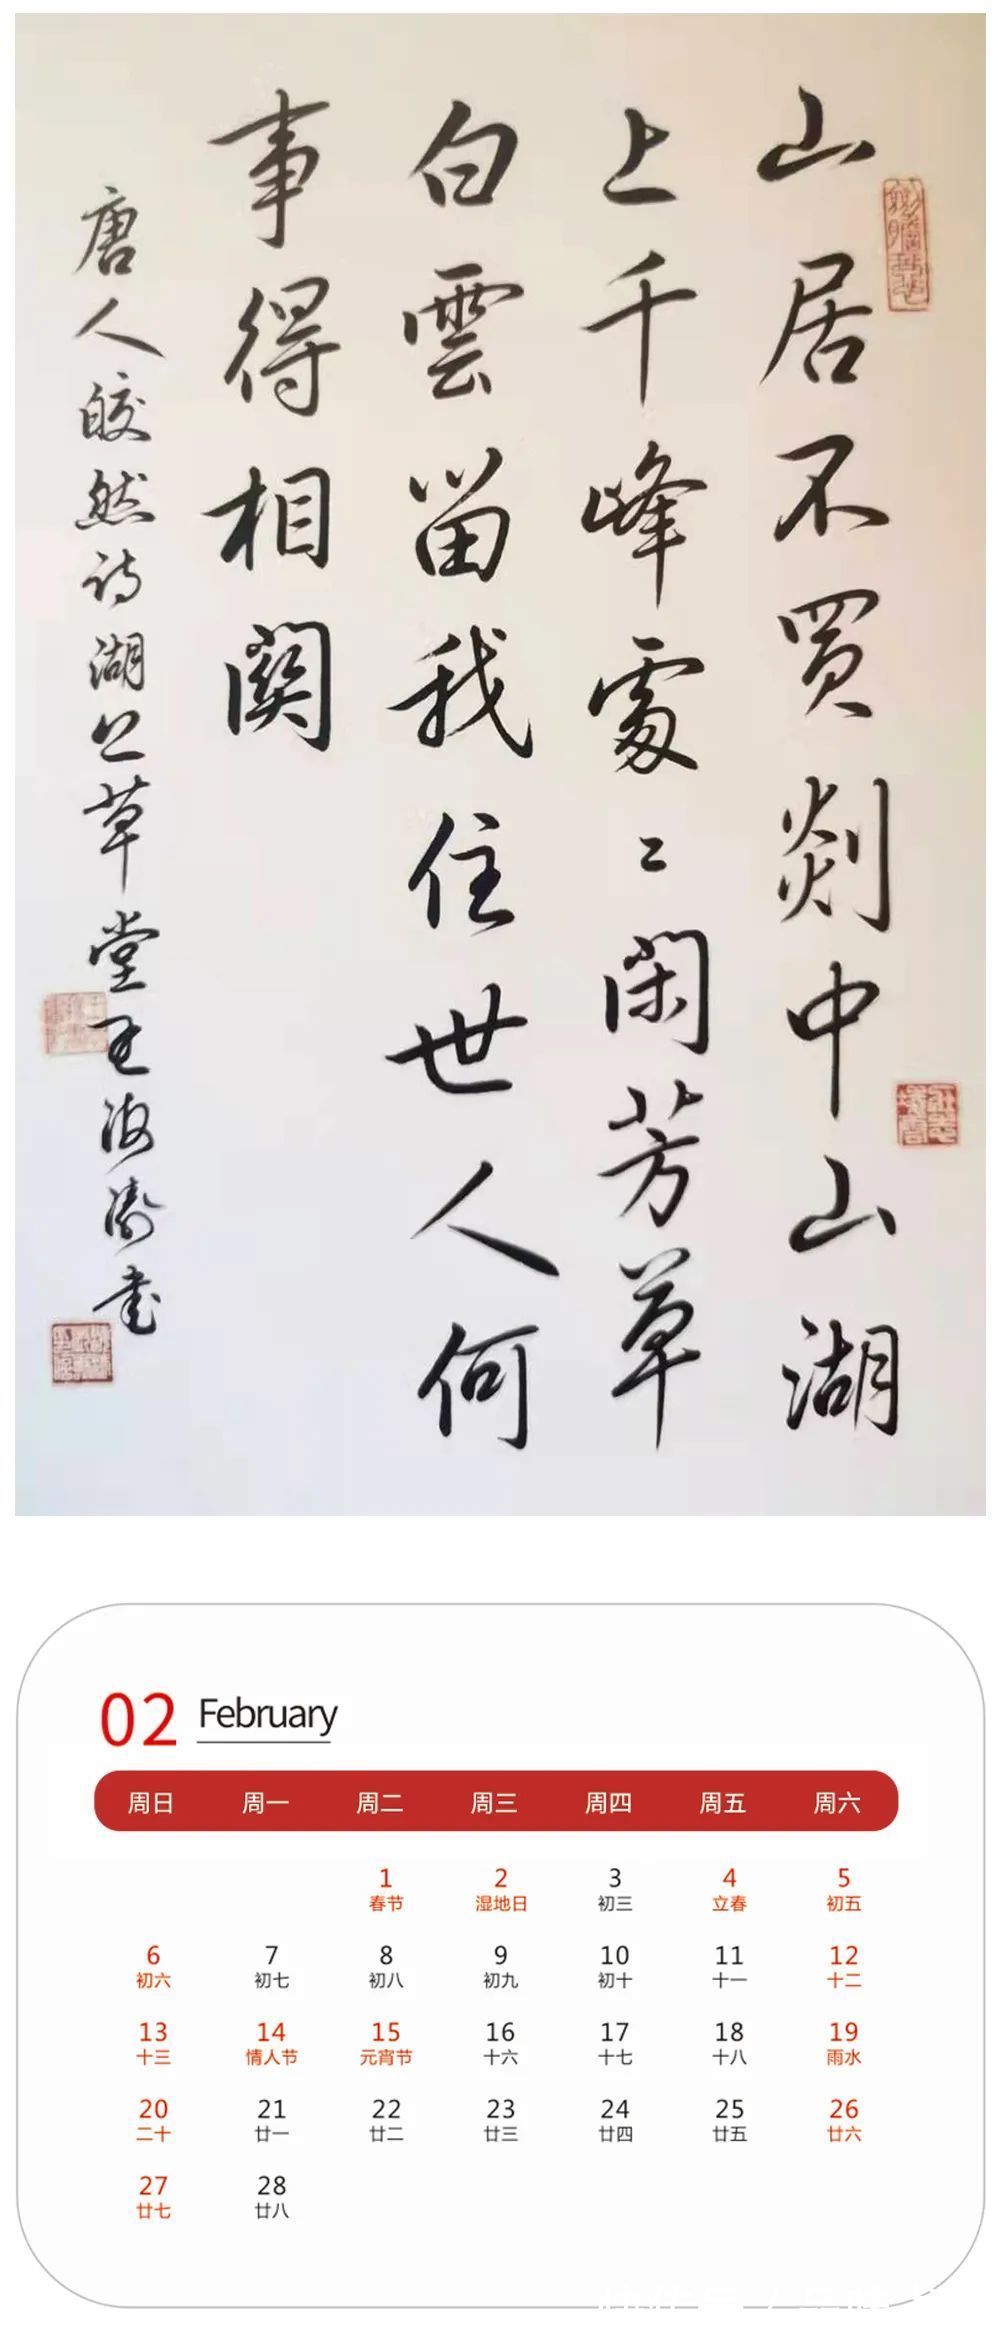 山居不買剡中山湖
上千峰處〻閑芳草
白雲留我住世人何
事得相関
唐人皎然诗湖上草堂王海涛书
02 February
周日 周一 周二 周三 周四 周五 周六
1 2 3 4 5
春节 湿地日 初三 立春 初五
6 7 8 9 10 11 12
初六 初七 初八 初九 初十 十一 十二
13 14 15 16 17 18 19
十三 情人节 元宵节 十六 十七 十八 雨水
20 21 22 23 24 25 26
二十 廿一 廿二 廿三 廿四 廿五 廿六
27 28
廿七 廿八